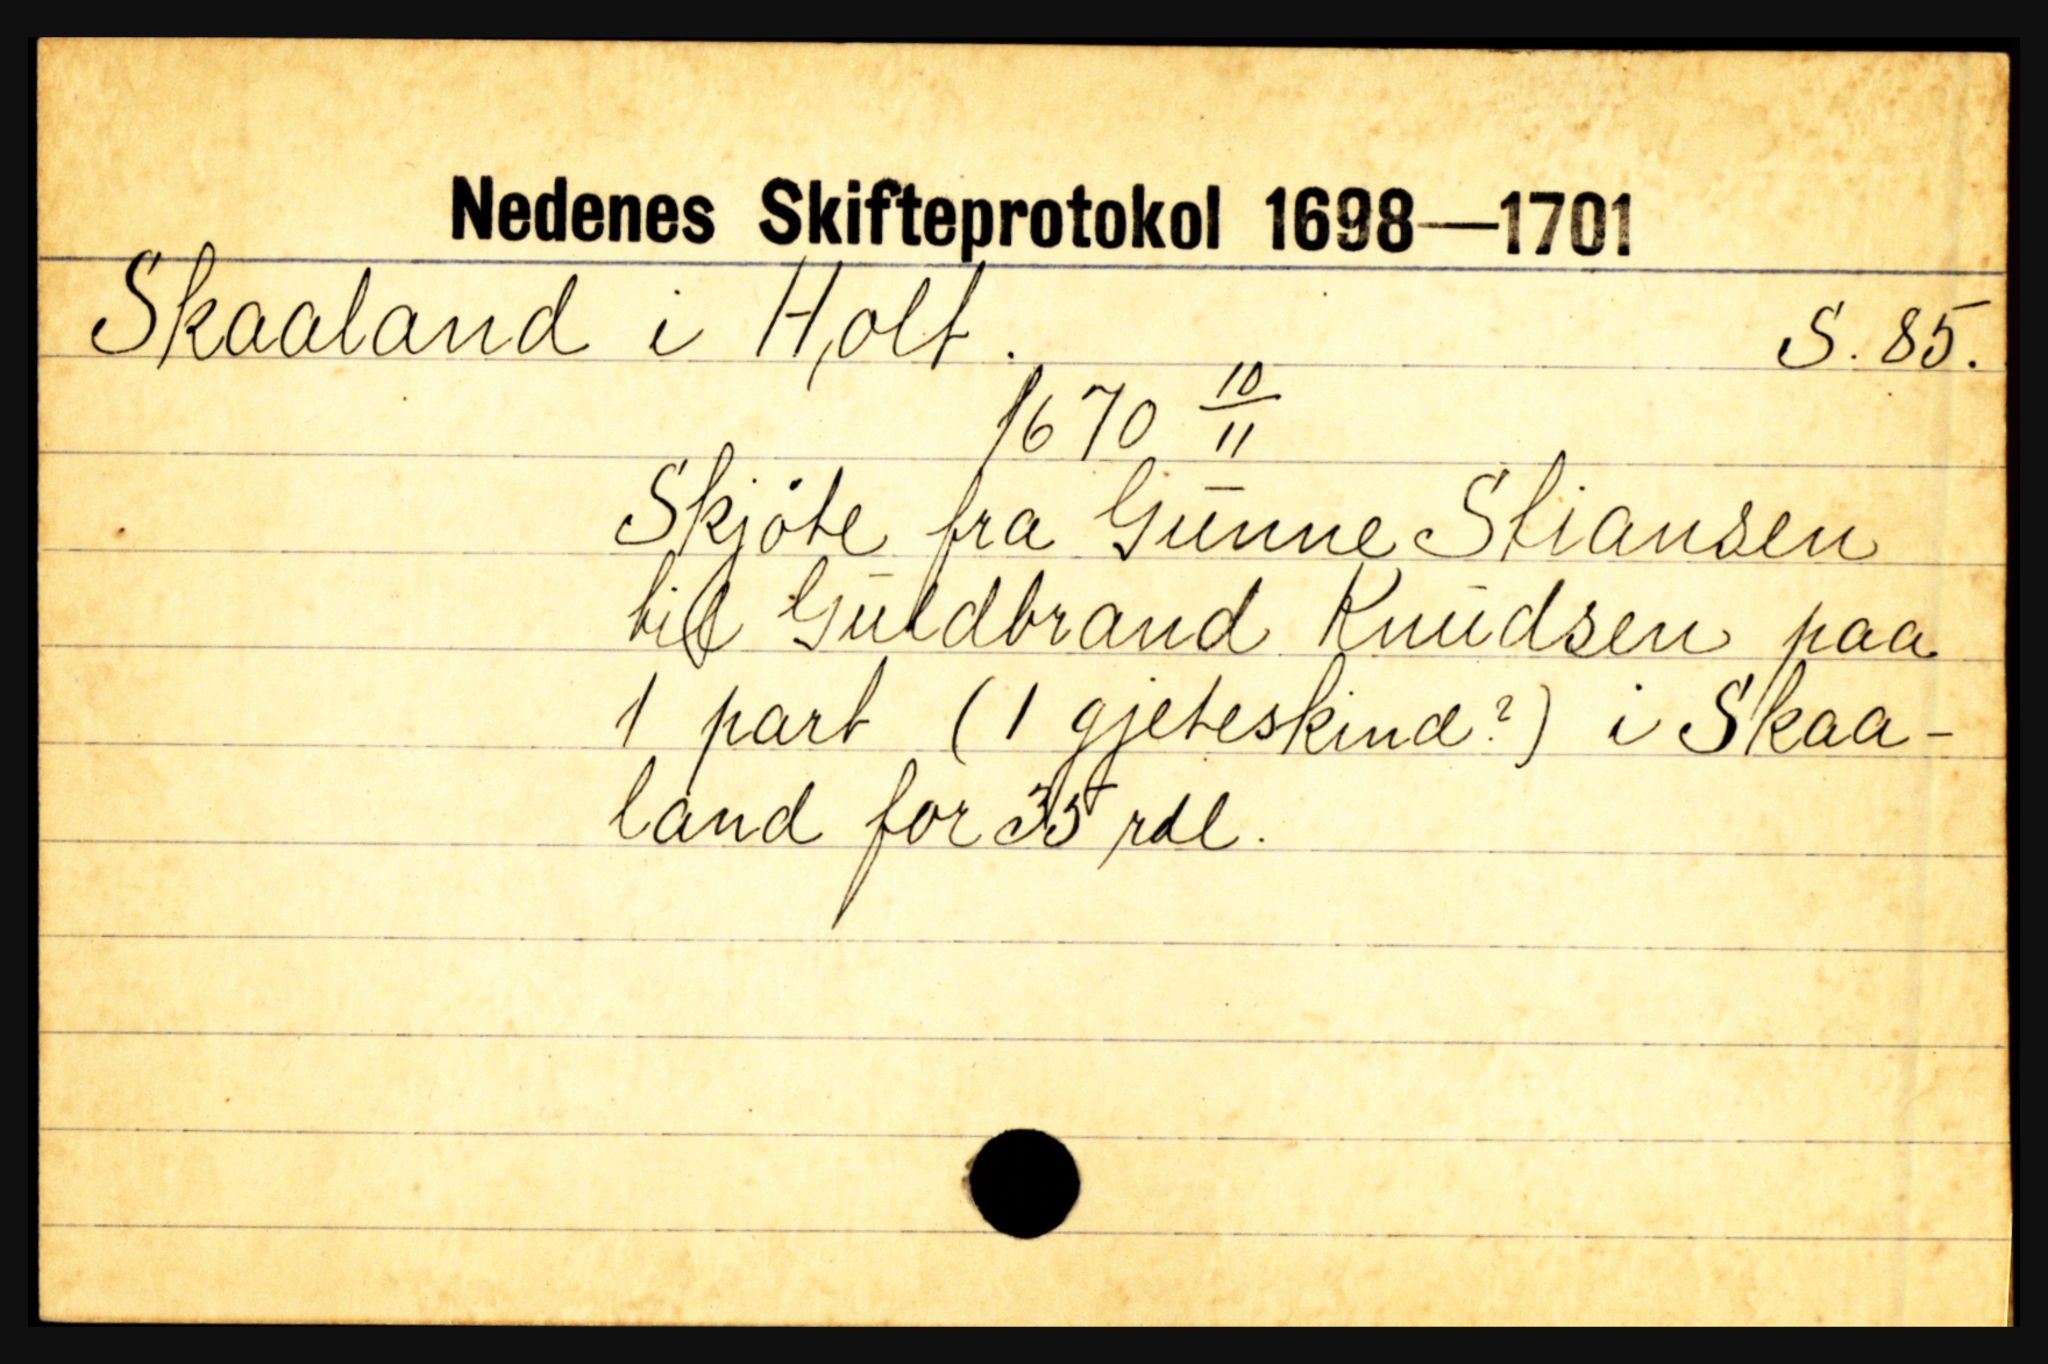 Nedenes Skifteprotokol 1698—1701
Skaaland i Holt. S. 85.
1670 10/11
Skjöte fra Gunne Stiansen
til Guldbrand Knudsen paa
1 part (1 gjeteskind?) i Skaa-
land for 35 rdl.